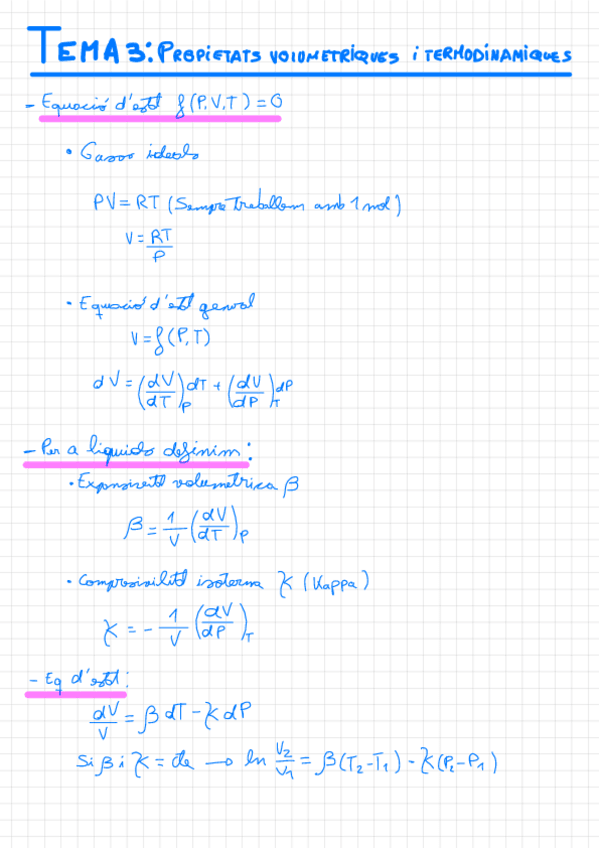 TEMA 3: PROPIETATS VOLUMETRIQUES i TERMODINAMIQUES
- Equació d'estat f(P,V,T) = 0
• Gasos ideals
PV = RT (Sempre treballem amb 1 mol)
V = RT/P
• Equació d'estat general
V = f(P,T)
dV = (dV/dT)_P dT + (dV/dP)_T dP
- Per a liquids definim:
• Expansivitat volumetrica β
β = 1/V (dV/dT)_P
• Compresivilitat isoterma κ (Kappa)
κ = - 1/V (dV/dP)_T
- Eq d'estat:
dV/V = β dT - κ dP
Si β i κ = cte → ln V₂/V₁ = β(T₂-T₁) - κ(P₂-P₁)